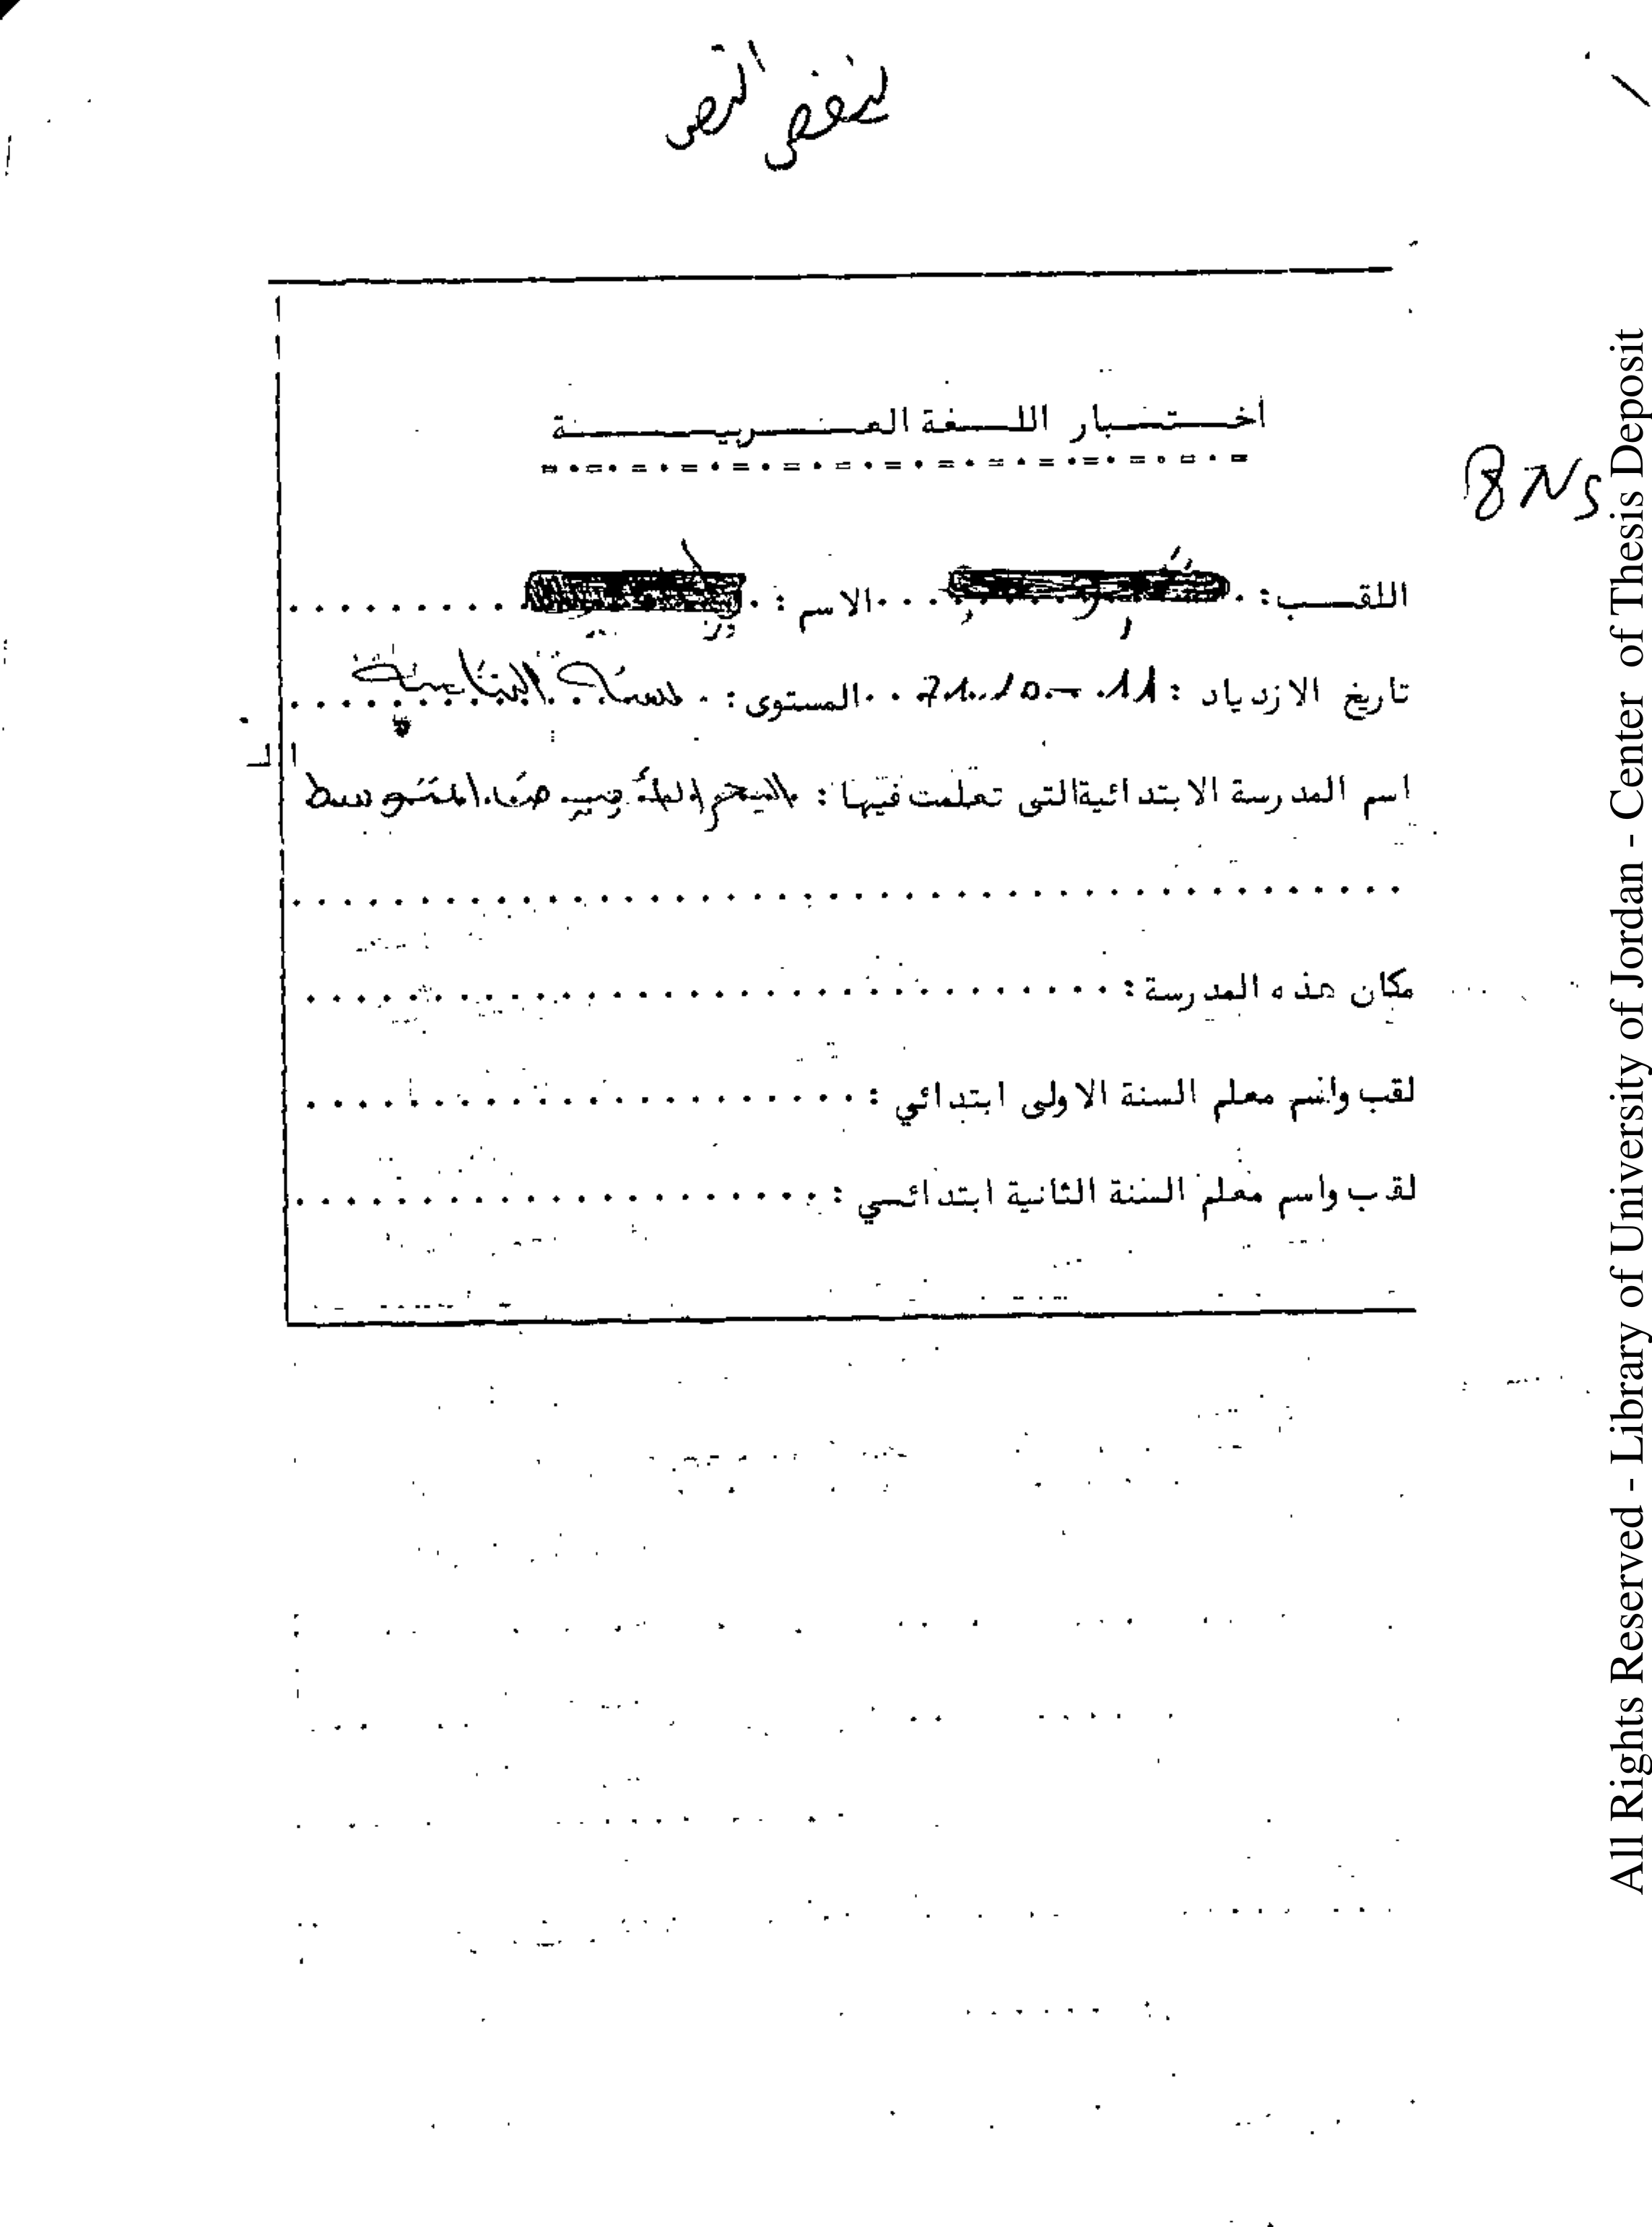 أختبار اللغة العربية
BNS
اللقب: الاسم:
تاريخ الازدياد: 11 - 10 - 71 المستوى: لسنة
اسم المدرسة الابتدائية التي تعلمت فيها: المتوسط
مكان هذه المدرسة:
لقب واسم معلم السنة الاولى ابتدائي:
لقب واسم معلم السنة الثانية ابتدائي:
All Rights Reserved - Library of University of Jordan - Center of Thesis Deposit